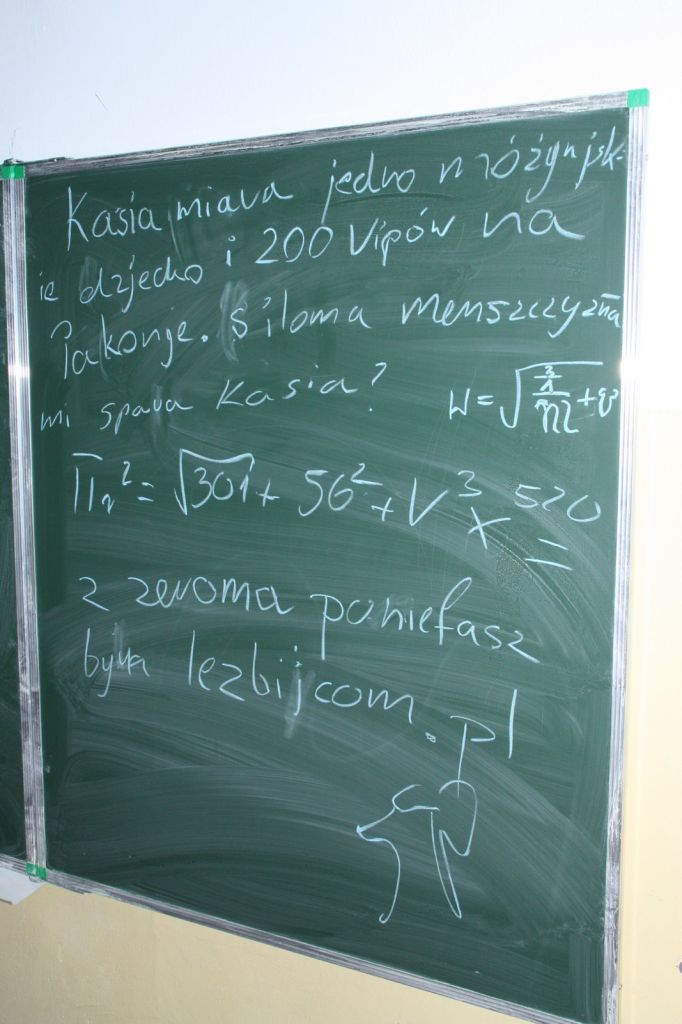 Kasia miava jedno mróżyńjsk-
ie dzjecko i 200 Vipów na
Pakonje. s iloma menszczyzna
mi spava Kasia? W=√3/1/m+v
Π² = √301 + 56² + V³ x 520 =
z zeroma poniefasz
byua lezbijcom.pl